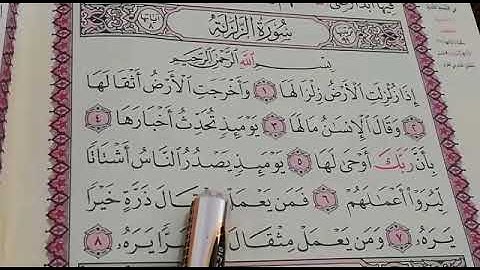 سُورَةُ الزَّلْزَلَةِ
بِسْمِ اللَّهِ الرَّحْمَٰنِ الرَّحِيمِ
إِذَا زُلْزِلَتِ الْأَرْضُ زِلْزَالَهَا ١ وَأَخْرَجَتِ الْأَرْضُ أَثْقَالَهَا
٢ وَقَالَ الْإِنسَٰنُ مَا لَهَا ٣ يَوْمَئِذٍ تُحَدِّثُ أَخْبَارَهَا ٤
بِأَنَّ رَبَّكَ أَوْحَىٰ لَهَا ٥ يَوْمَئِذٍ يَصْدُرُ النَّاسُ أَشْتَاتًا
لِّيُرَوْا أَعْمَٰلَهُمْ ٦ فَمَن يَعْمَلْ مِثْقَالَ ذَرَّةٍ خَيْرًا
يَرَهُۥ ٧ وَمَن يَعْمَلْ مِثْقَالَ شَرًّا يَرَهُۥ ٨